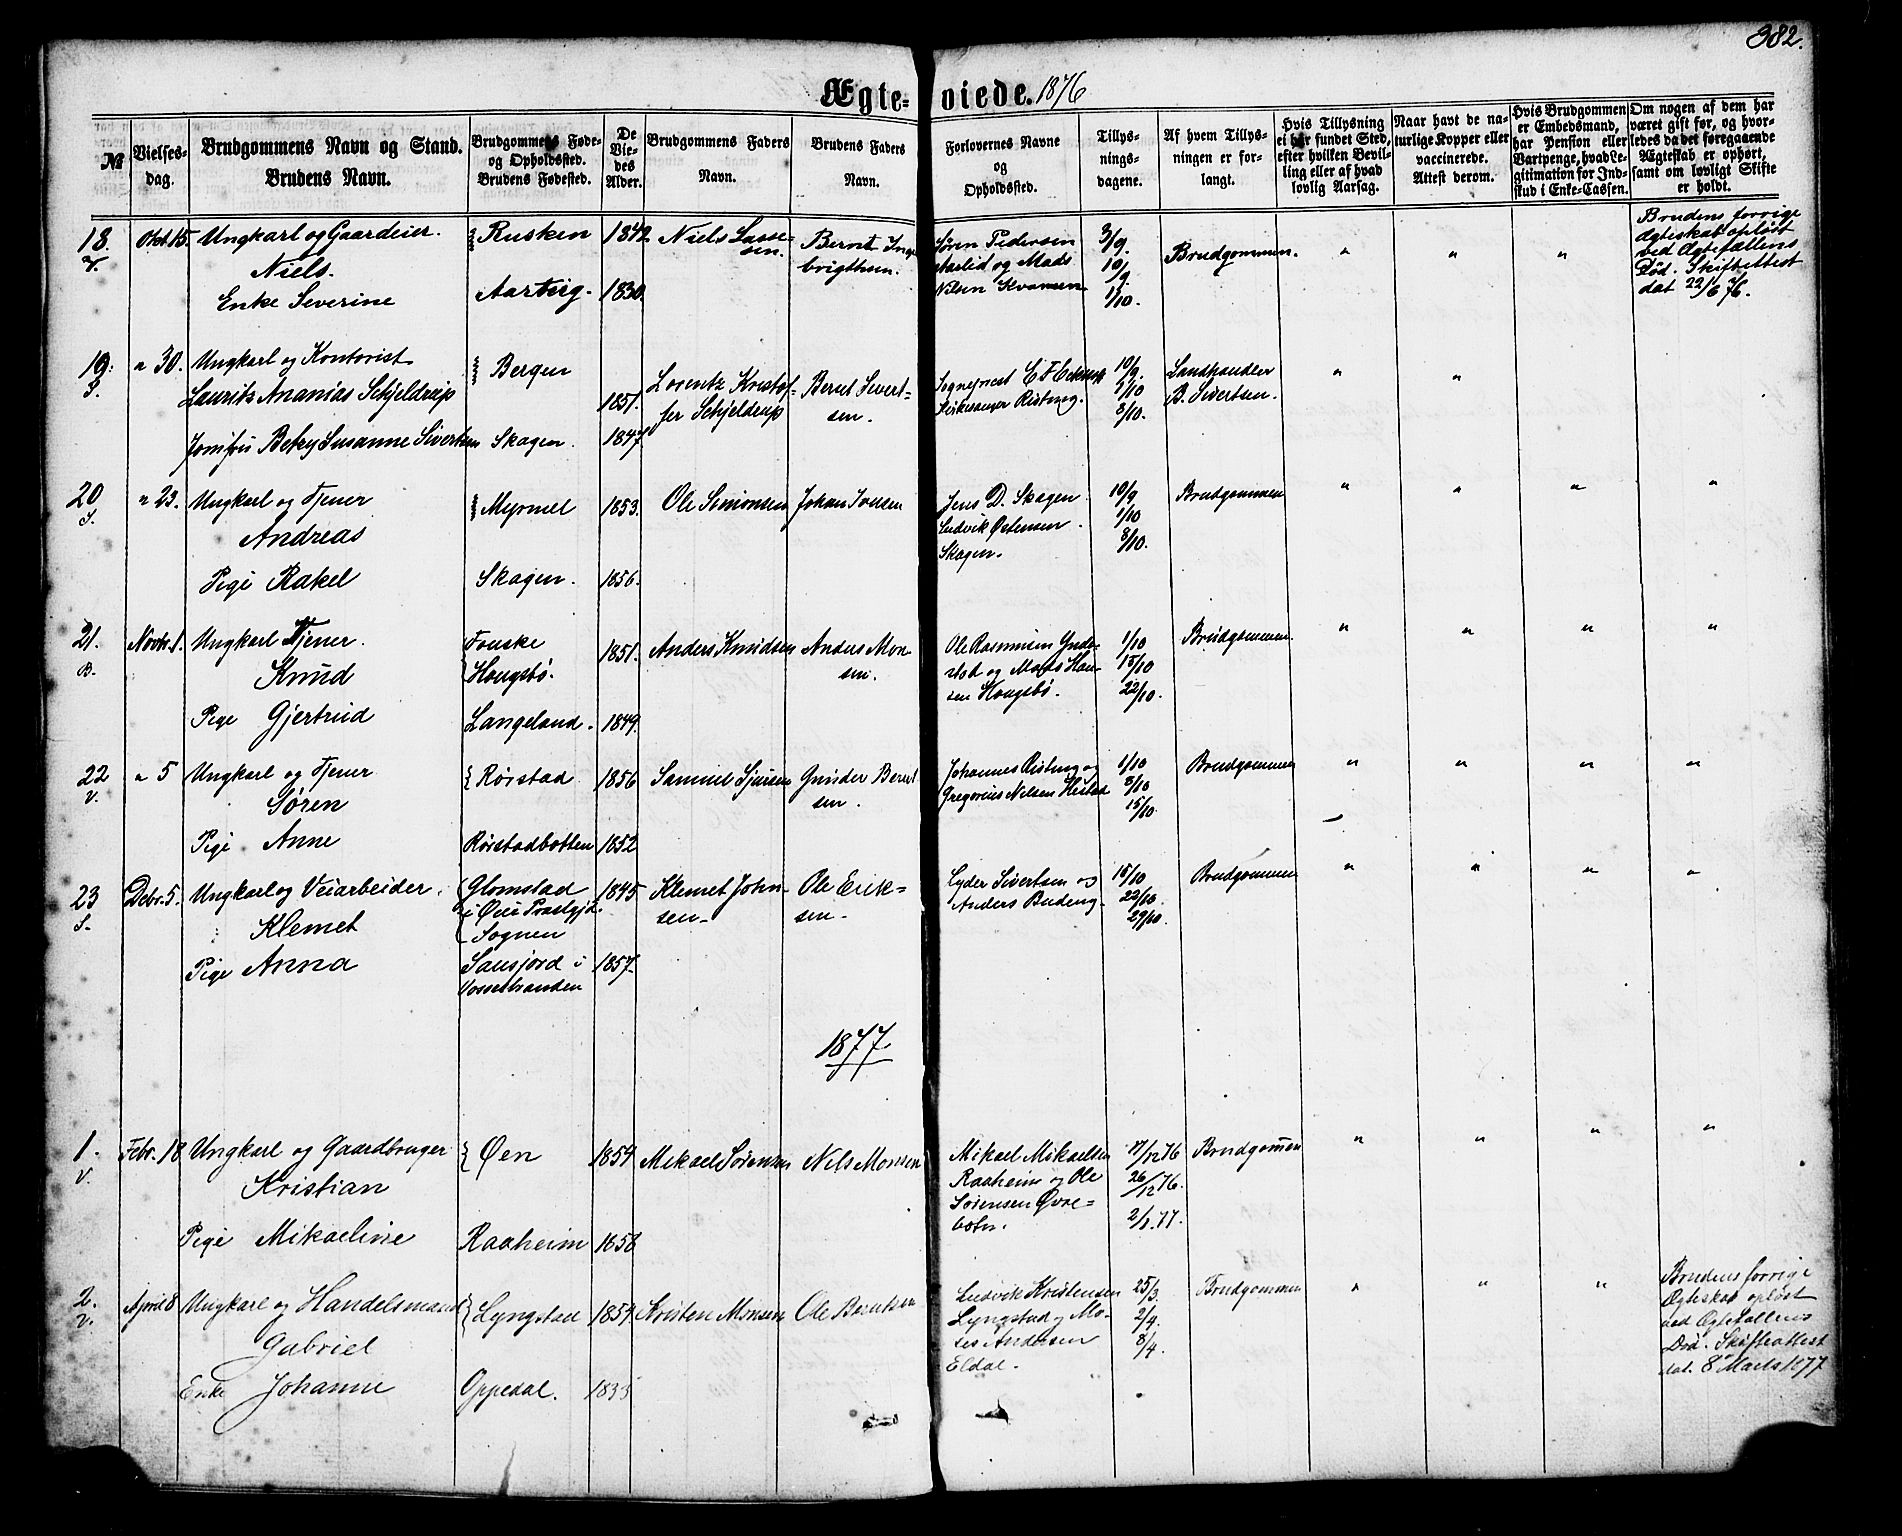 382.
Ægte- viede. 1876
№
Vielses-
dag.
Brudgommens Navn og Stand.
Brudens Navn.
Brudgommens Føde-
og Opholdssted.
Brudens Fødested.
De
Vie-
des
Alder.
Brudgommens Faders
Navn.
Brudens Faders
Navn.
Forlovernes Navne
og
Opholdssted.
Tillys-
nings-
dagene.
Af hvem Tillys-
ningen er for-
langt.
Hvis Tillysning
ei har fundet Sted,
efter hvilken Bevil-
ling eller af hvad
lovlig Aarsag.
Naar havt de na-
turlige Kopper eller
vaccinerede.
Attest derom.
Hvis Brudgommen
er Embedsmand,
har Pension eller
Vartpenge, hvad Le-
gitimation for Ind-
skud i Enke-Cassen.
Om nogen af dem har
været gift før, og hvor-
ledes da det foregaaende
Ægteskab er ophørt,
samt om lovligt Skifte
er holdt.
18. Okt. 15. Ungkarl og Gaardeier. Rusken 1842 Niels Lasse-
sen. Bernt Inge
brigthsen.
V. Niels.
Enke Severine Aarberg. 1830.
Søren Pedersen
og Mads
Nilsen Kvamsen
3/9.
10/9.
1/10.
Brudgommen. " " "
Brudens forrige
Ægteskab opløst
ved Ægtefællens
Død. Skifteattest
dat 22/6 76.
19. " 30. Ungkarl og Kontorist Bergen
S. Laurits Ananias Schjelderup 1851. Lorentz Kristof-
fer Schjelderup Bernt Sivert-
sen.
Jomfru Betzy Susanne Sivertsen Skagen. 1847
Sognepræst
Ristning.
10/9.
1/10
8/10.
Landhandler
B. Sivertsen. " "
20 " 23. Ungkarl og Tjener Myrmel 1853. Ole Simonsen Johan Iversen
S. Andreas
Pige Rakel Skagen. 1856.
Jens D. Skagen
Ludvik Østensen
Skagen.
10/9
1/10
8/10.
Brudgommen " " " "
21. Novbr. 1. Ungkarl Tjener. Fouske
Hougsbø. 1851. Anders Knudsen Anders Mon
sen.
B. Knud
Pige Gjertrud Langeland. 1849.
Ole Rasmusen Ynde-
stad og Mads Han-
sen Hougsbø.
1/10
15/10
22/10.
Brudgommen. " " " "
22 " 5 Ungkarl og Tjener Rørstad 1856 Samuel Sjursen Gunder Bernt
sen.
V. Søren
Pige Anne Rørstadbotten 1852
Johannes Ristning og
Gregorius Nilsen Hestad
1/10
8/10
15/10.
Brudgommen " " " "
23 Debr. 5. Ungkarl og Veiarbeider. Glomstad
i Øier Præstgjd.
Sognen 1845 Klemet John-
sen- Ole Erik-
sen-
S. Klemet
Pige Anna
i
Vossestranden 1857.
Lyder Sivertsen og
Anders Budeng.
15/10
22/10.
29/10.
Brudgommen " " " "
1877
1. Febr. 18 Ungkarl og Gaardbruger Øen 1854 Mikael Sørensen Nils Monsen
V. Kristian
Pige Mikaeline Raaheim 1858
Mikael Mikaelsen
Raaheim og Ole
Sørensen Øvre-
botn.
17/12 76
26/12 76.
2/1. 77.
Brudgommen " " " "
2. April 8 Ungkarl og Handelsmand Lyngstad 1854 Kristen Monsen Ole Berntsen
V. Gabriel
Enke Johanne Oppedal. 1835
Ludvik Kristensen
Lyngstad og Mo-
ses Andersen
Eldal.
25/3.
2/4.
8/4.
Brudgommen " " "
Brudens forrige
Ægteskab opløst
ved Ægtefællens
Død. Skifteattest
dat. 8 Marts 1877